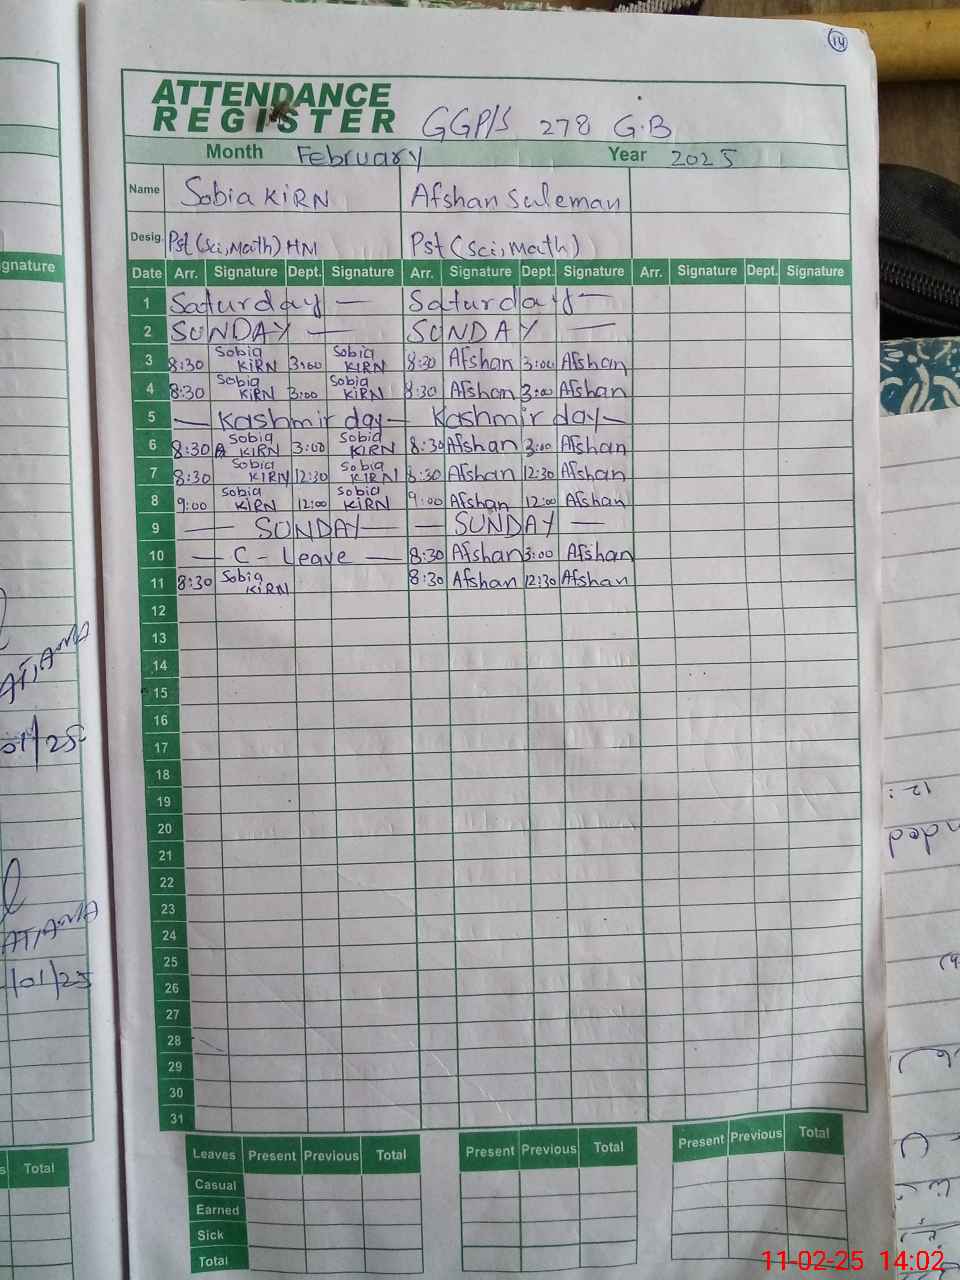 14
ATTENDANCE
REGISTER GGP/S 278 G.B
Month February Year 2025
Name Sobia KiRN Afshan Suleman
Desig. Pst (Sci, Math) HM Pst (Sci, Math)
Date Arr. Signature Dept. Signature Arr. Signature Dept. Signature Arr. Signature Dept. Signature
1 Saturday — Saturday —
2 SUNDAY — SUNDAY —
3 8:30 Sobia KiRN 3:00 Sobia KiRN 8:30 Afshan 3:00 Afshan
4 8:30 Sobia KiRN 3:00 Sobia KiRN 8:30 Afshan 3:00 Afshan
5 — Kashmir day — Kashmir day —
6 8:30 Sobia KIRN 3:00 Sobia KIRN 8:30 Afshan 3:00 Afshan
7 8:30 Sobia KIRN 12:30 Sobia KIRN 8:30 Afshan 12:30 Afshan
8 9:00 Sobia KIRN 12:00 Sobia KIRN 9:00 Afshan 12:00 Afshan
9 — SUNDAY — — SUNDAY —
10 — C - Leave — 8:30 Afshan 3:00 Afshan
11 8:30 Sobia KiRN 8:30 Afshan 12:30 Afshan
12
13
14
15
16
17
18
19
20
21
22
23
24
25
26
27
28
29
30
31
Leaves Present Previous Total Present Previous Total Present Previous Total
Casual
Earned
Sick
Total
gnature
01/25
/01/25
Total
11-02-25 14:02